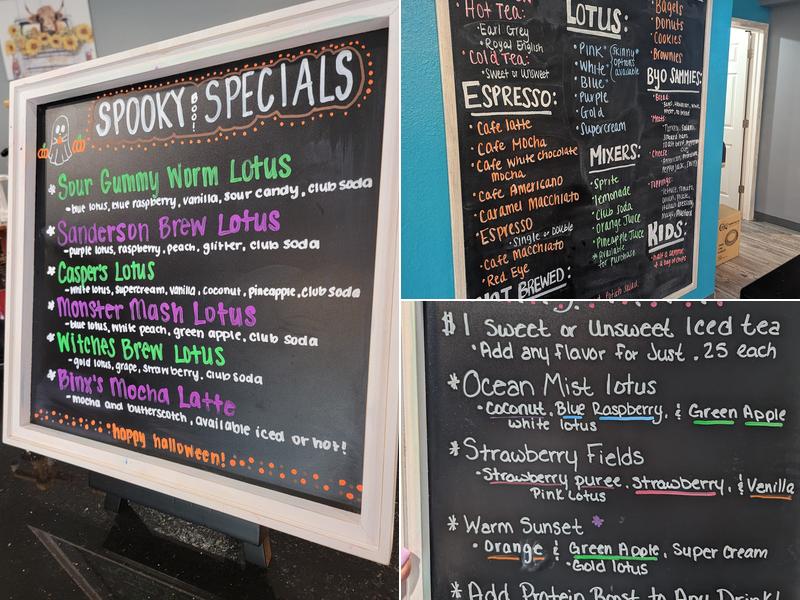 SPOOKY BOO! SPECIALS
* Sour Gummy Worm Lotus
- blue lotus, blue raspberry, vanilla, sour candy, club soda
* Sanderson Brew Lotus
- purple lotus, raspberry, peach, glitter, club soda
* Casper's Lotus
- white lotus, supercream, vanilla, coconut, pineapple, club soda
* Monster Mash Lotus
- blue lotus, white peach, green apple, club soda
* Witches Brew Lotus
- gold lotus, grape, strawberry, club soda
* Binx's Mocha Latte
- mocha and butterscotch, available iced or hot!
happy halloween!
Hot Tea:
• Earl Grey
• Royal English
Cold Tea:
• Sweet or unsweet
ESPRESSO:
• Cafe latte
• Cafe Mocha
• Cafe White chocolate
mocha
• Cafe Americano
• Caramel Macchiato
• Espresso
• Single or Double
• Cafe Macchiato
• Red Eye
HOT BREWED:
LOTUS:
• Pink
• White
• Blue
• Purple
• Gold
• Supercream
Skinny
options
available
MIXERS:
• Sprite
• lemonade
• Club soda
• Orange Juice
• Pineapple Juice
* Available
for Purchase
• Bagels
• Donuts
• Cookies
• Brownies
BYO SAMMIES:
• Bread:
• Meats:
• Cheese:
• Toppings:
KIDS:
• half a sammie
& a bag of chips
$1 Sweet or Unsweet Iced tea
• Add any flavor for Just .25 each
* Ocean Mist lotus
• coconut, Blue Raspberry, & Green Apple
white lotus
* Strawberry Fields
• Strawberry puree, strawberry, & Venilla
Pink Lotus
* Warm Sunset *
• Orange & Green Apple, Super Cream
• Gold lotus
* Add Protein Boost to Any Drink!